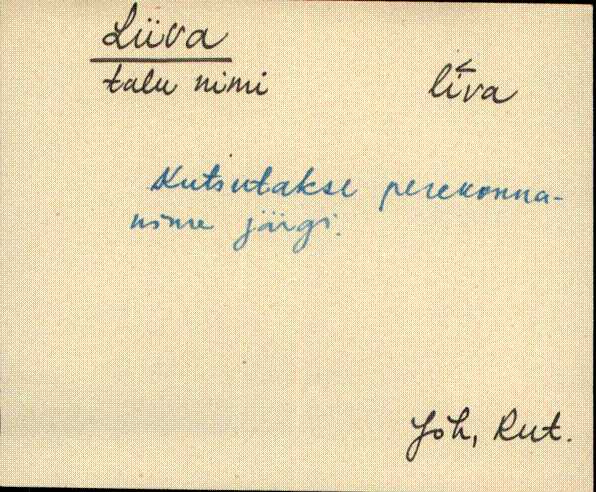 Liiva
talu nimi līva
Kutsutakse perekonna-
nime järgi.
Jõh, Rut.